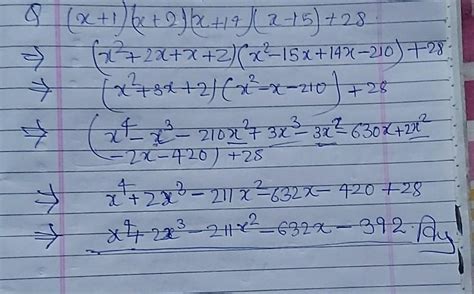 Q (x+1)(x+2)(x+14)(x-15)+28
⇒ (x²+2x+x+2)(x²-15x+14x-210)+28
⇒ (x²+3x+2)(x²-x-210)+28
⇒ (x⁴-x³-210x²+3x³-3x²-630x+2x²
-2x-420)+28
⇒ x⁴+2x³-211x²-632x-420+28
⇒ x⁴+2x³-211x²-632x-392.